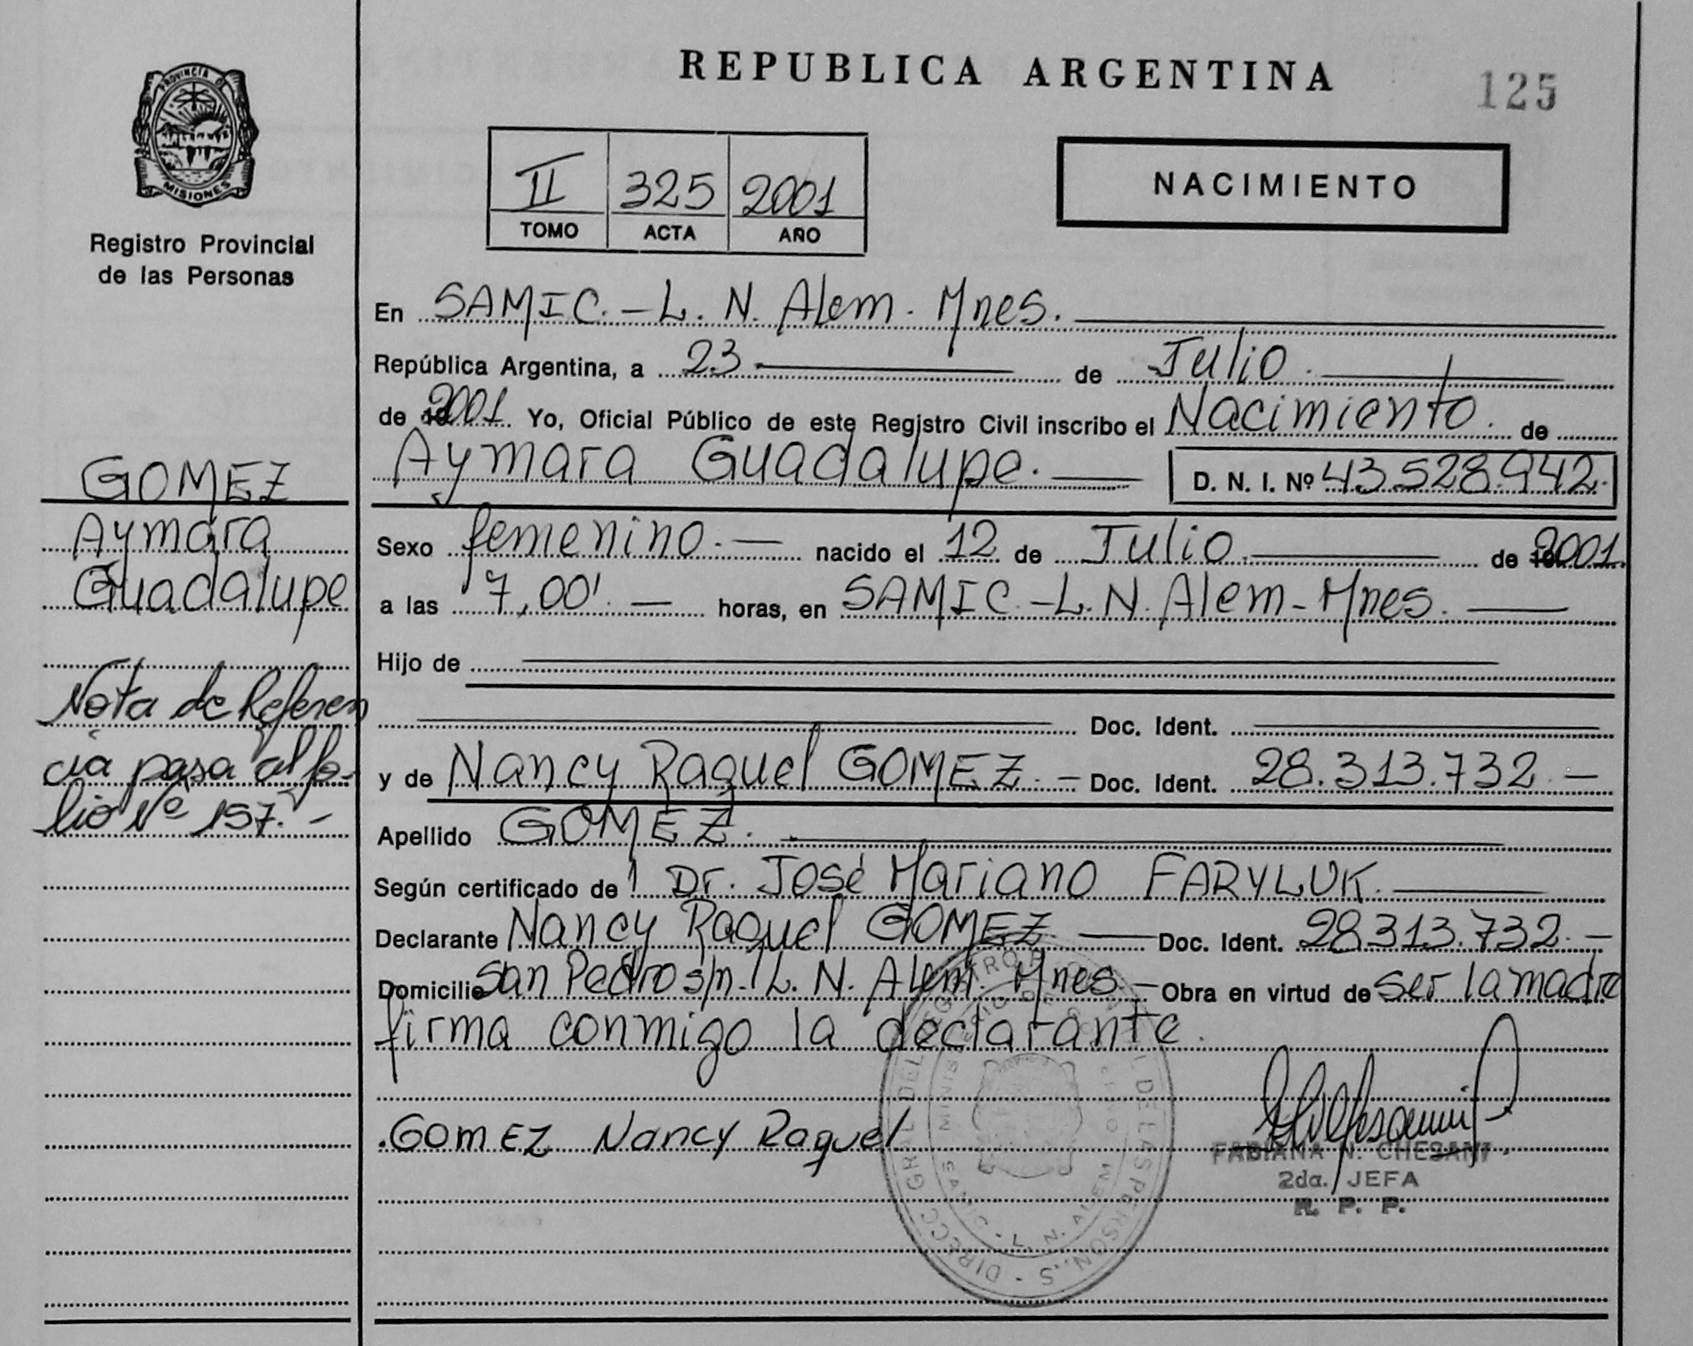 REPUBLICA ARGENTINA
125
PROVINCIA DE
MISIONES
Registro Provincial
de las Personas
II 325 2001
TOMO ACTA AÑO
NACIMIENTO
En SAMIC.-L. N. Alem. Mnes.
República Argentina, a 23 de Julio
de 2001. Yo, Oficial Público de este Registro Civil inscribo el Nacimiento. de
Aymara Guadalupe. D. N. I. Nº 43.528.942.
Sexo femenino.- nacido el 12 de Julio. de 2001.
a las 7,00'. horas, en SAMIC.-L. N. Alem- Mnes.
Hijo de
Doc. Ident.
y de Nancy Raquel GOMEZ.- Doc. Ident. 28.313.732.-
Apellido GOMEZ.
Según certificado de Dr. José Mariano FARYLUK.
Declarante Nancy Raquel GOMEZ Doc. Ident. 28.313.732.-
Domicilio San Pedro s/n. L. N. Alem. Mnes.- Obra en virtud de ser la madre
firma conmigo la declarante.
GOMEZ Nancy Raquel
FABIANA N. CHESANI
2da. JEFA
R. P. P.
GOMEZ
Aymara
Guadalupe
Nota de Referen
cia pasa al fo-
lio Nº 157.-